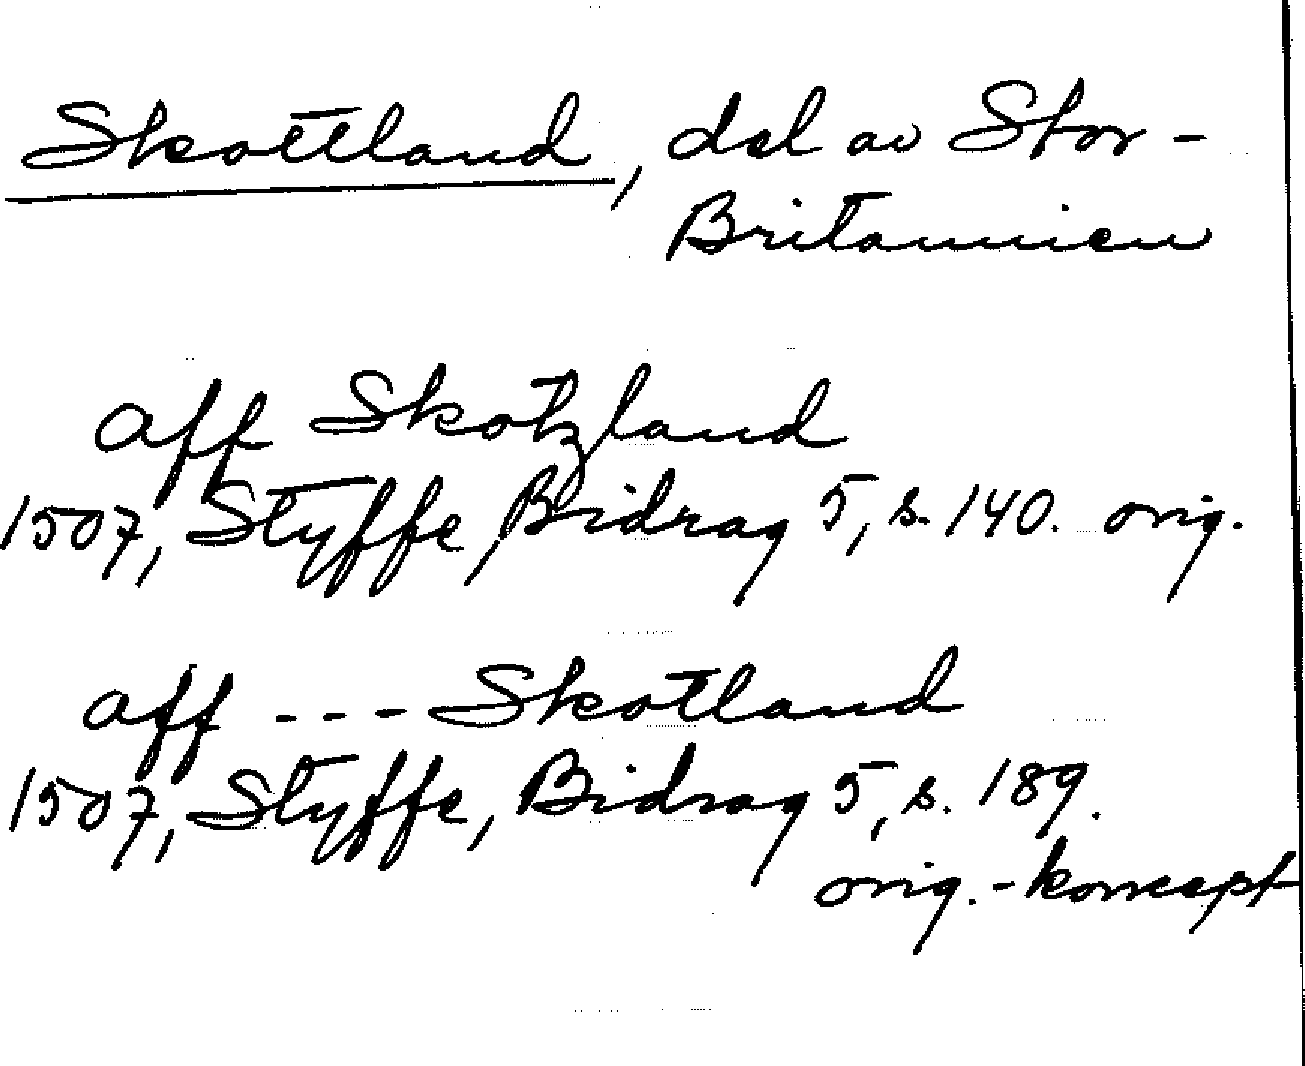 Skottland, del av Stor-
Britannien
aff Skotzland
1507, Styffe, Bidrag 5, s. 140. orig.
aff --- Skotland
1507, Styffe, Bidrag 5, s. 189.
orig.-koncept